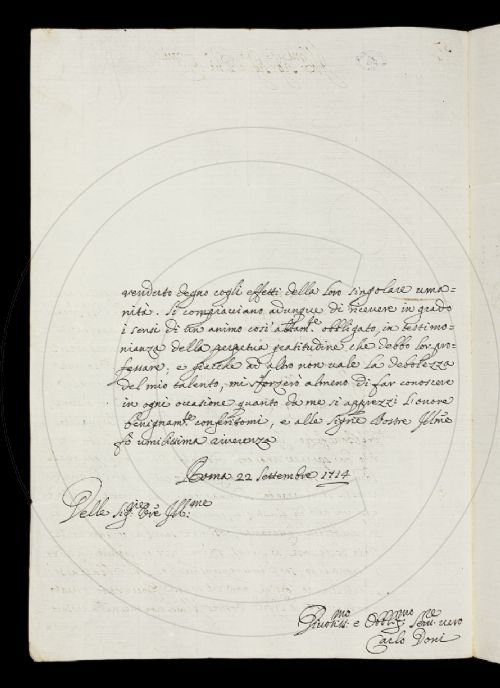 venduto degno cogli effetti della loro singolare uma-
nità. Si compiacciano adunque di ricevere in grado
i sensi di un animo così attam.te obbligato, in testimo-
nianza della perpetua gratitudine che debbo lor pro-
fessare, e giacche ad altro non vale la debolezza
del mio talento, mi sforzerò almeno di far conoscere
in ogni occasione quanto da me si apprezzi l'onore
benignam.te conferitomi, e alle Sig.rie Vostre Ill.me
fò umilissima riverenza
Roma 22 Settembre 1714
Delle Sig.rie V.re Ill.me
Divotis.mo e Obblig.mo Serv.re vero
Carlo Doni